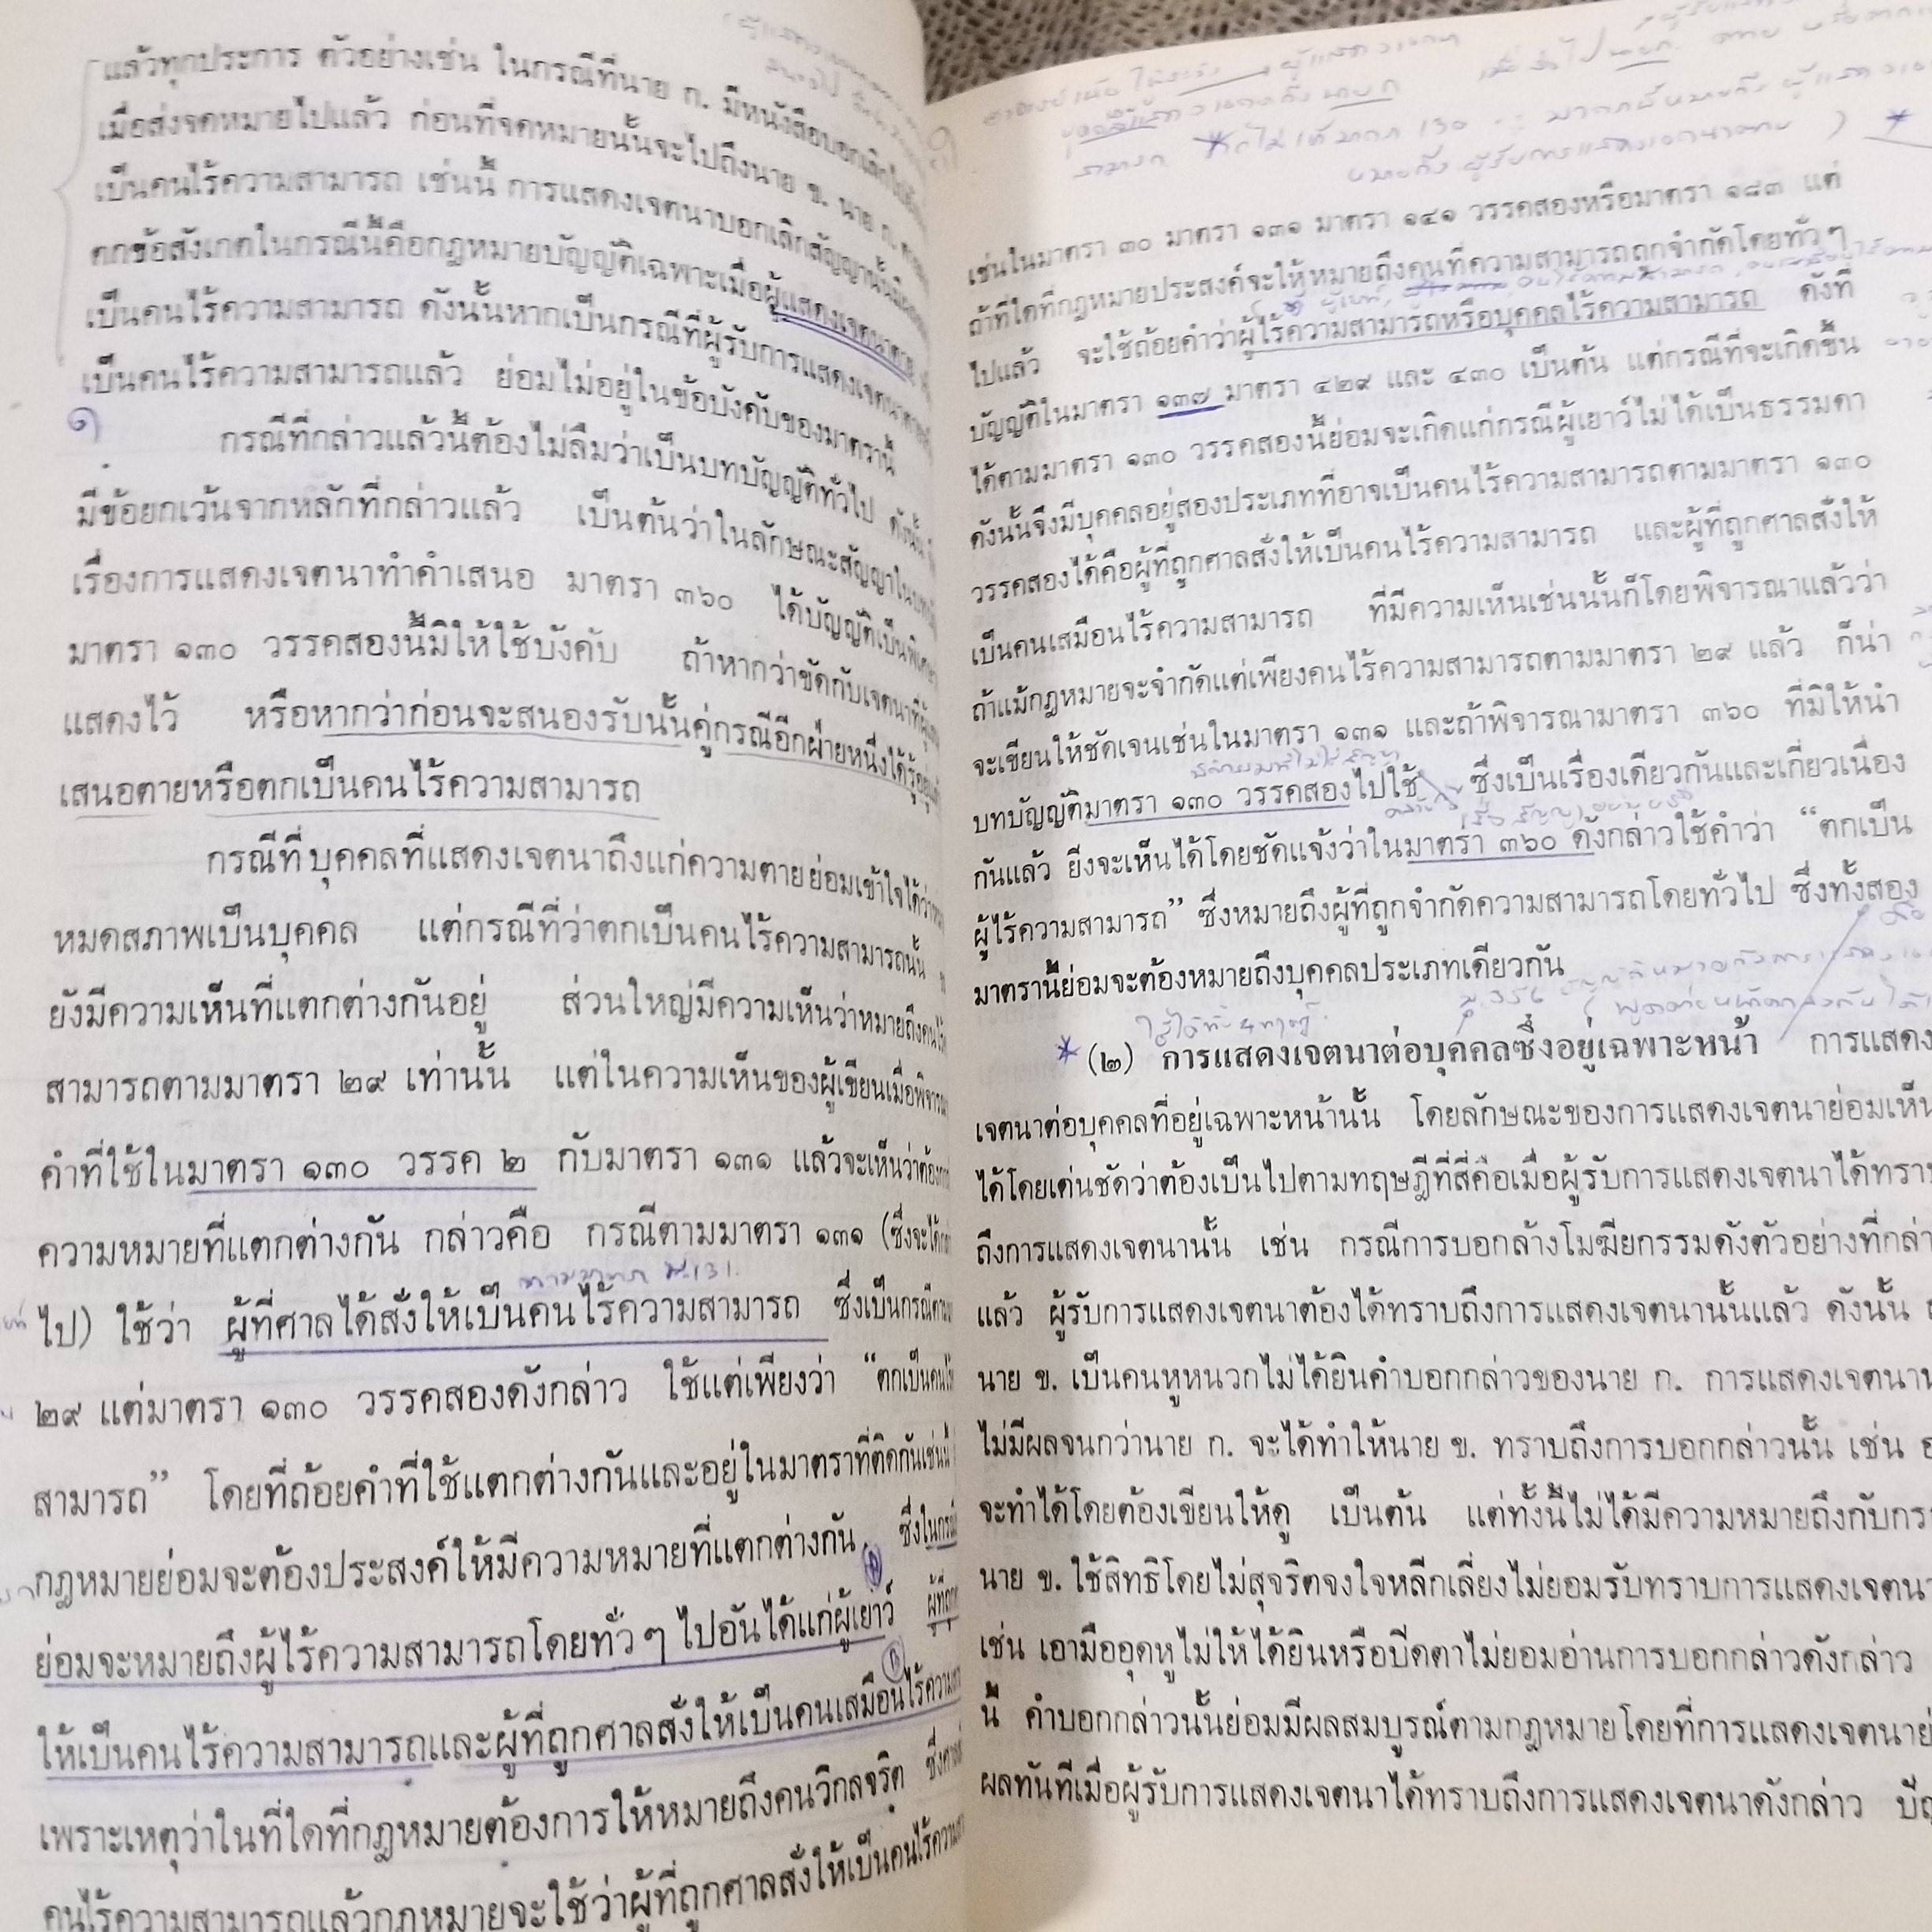 แล้วทุกประการ ตัวอย่างเช่น ในกรณีที่นาย ก. มีหนังสือบอกเลิก
เมื่อส่งจดหมายไปแล้ว ก่อนที่จดหมายนั้นจะไปถึงนาย ข. นาย ก.
เป็นคนไร้ความสามารถ เช่นนี้ การแสดงเจตนาบอกเลิกสัญญานั้น
ตกข้อสังเกตในกรณีนี้คือกฎหมายบัญญัติเฉพาะเมื่อผู้แสดงเจตนาตาย
เป็นคนไร้ความสามารถ ดังนั้นหากเป็นกรณีที่ผู้รับการแสดงเจตนาตาย
เป็นคนไร้ความสามารถแล้ว ย่อมไม่อยู่ในข้อบังคับของมาตรานี้
กรณีที่กล่าวแล้วนี้ต้องไม่ลืมว่าเป็นบทบัญญัติทั่วไป ดังนั้น
มีข้อยกเว้นจากหลักที่กล่าวแล้ว เป็นต้นว่าในลักษณะสัญญาใน
เรื่องการแสดงเจตนาทำคำเสนอ มาตรา ๓๖๐ ได้บัญญัติเป็นพิเศษ
มาตรา ๑๓๐ วรรคสองนี้มิให้ใช้บังคับ ถ้าหากว่าขัดกับเจตนาที่
แสดงไว้ หรือหากว่าก่อนจะสนองรับนั้นคู่กรณีอีกฝ่ายหนึ่งได้รู้อยู่แล้ว
เสนอตายหรือตกเป็นคนไร้ความสามารถ
กรณีที่บุคคลที่แสดงเจตนาถึงแก่ความตายย่อมเข้าใจได้ว่า
หมดสภาพเป็นบุคคล แต่กรณีที่ว่าตกเป็นคนไร้ความสามารถนั้น
ยังมีความเห็นที่แตกต่างกันอยู่ ส่วนใหญ่มีความเห็นว่าหมายถึงคนไร้
สามารถตามมาตรา ๒๙ เท่านั้น แต่ในความเห็นของผู้เขียนเมื่อพิจารณา
คำที่ใช้ในมาตรา ๑๓๐ วรรค ๒ กับมาตรา ๑๓๑ แล้วจะเห็นว่าต้อง
ความหมายที่แตกต่างกัน กล่าวคือ กรณีตามมาตรา ๑๓๑ (ซึ่งจะได้
ไป) ใช้ว่า ผู้ที่ศาลได้สั่งให้เป็นคนไร้ความสามารถ ซึ่งเป็นกรณีตาม
๒๙ แต่มาตรา ๑๓๐ วรรคสองดังกล่าว ใช้แต่เพียงว่า “ตกเป็นคนไร้
สามารถ” โดยที่ถ้อยคำที่ใช้แตกต่างกันและอยู่ในมาตราที่ติดกันเช่นนี้
กฎหมายย่อมจะต้องประสงค์ให้มีความหมายที่แตกต่างกัน ซึ่งในกรณี
ย่อมจะหมายถึงผู้ไร้ความสามารถโดยทั่วๆ ไปอันได้แก่ผู้เยาว์ ผู้ที่ถูก
ให้เป็นคนไร้ความสามารถและผู้ที่ถูกศาลสั่งให้เป็นคนเสมือนไร้ความ
เพราะเหตุว่าในที่ใดที่กฎหมายต้องการให้หมายถึงคนวิกลจริต
คนไร้ความสามารถแล้วกฎหมายจะใช้ว่าผู้ที่ถูกศาลสั่งให้เป็นคนไร้ความ
เช่นในมาตรา ๓๐ มาตรา ๑๓๑ มาตรา ๑๔๑ วรรคสองหรือมาตรา ๑๘๓ แต่
ถ้าที่ใดที่กฎหมายประสงค์จะให้หมายถึงคนที่ความสามารถถูกจำกัดโดยทั่วๆ
ไปแล้ว จะใช้ถ้อยคำว่าผู้ไร้ความสามารถหรือบุคคลไร้ความสามารถ ดังที่
บัญญัติในมาตรา ๑๓๗ มาตรา ๔๒๙ และ ๔๓๐ เป็นต้น แต่กรณีที่จะเกิดขึ้น
ได้ตามมาตรา ๑๓๐ วรรคสองนี้ย่อมจะเกิดแก่กรณีผู้เยาว์ไม่ได้เป็นธรรมดา
ดังนั้นจึงมีบุคคลอยู่สองประเภทที่อาจเป็นคนไร้ความสามารถตามมาตรา ๑๓๐
วรรคสองได้คือผู้ที่ถูกศาลสั่งให้เป็นคนไร้ความสามารถ และผู้ที่ถูกศาลสั่งให้
เป็นคนเสมือนไร้ความสามารถ ที่มีความเห็นเช่นนั้นก็โดยพิจารณาแล้วว่า
ถ้าแม้กฎหมายจะจำกัดแต่เพียงคนไร้ความสามารถตามมาตรา ๒๙ แล้ว ก็น่า
จะเขียนให้ชัดเจนเช่นในมาตรา ๑๓๑ และถ้าพิจารณามาตรา ๓๖๐ ที่มิให้นำ
บทบัญญัติมาตรา ๑๓๐ วรรคสองไปใช้ ซึ่งเป็นเรื่องเดียวกันและเกี่ยวเนื่อง
กันแล้ว ยิ่งจะเห็นได้โดยชัดแจ้งว่าในมาตรา ๓๖๐ ดังกล่าวใช้คำว่า “ตกเป็น
ผู้ไร้ความสามารถ” ซึ่งหมายถึงผู้ที่ถูกจำกัดความสามารถโดยทั่วไป ซึ่งทั้งสอง
มาตรานี้ย่อมจะต้องหมายถึงบุคคลประเภทเดียวกัน
(๒) การแสดงเจตนาต่อบุคคลซึ่งอยู่เฉพาะหน้า การแสดง
เจตนาต่อบุคคลที่อยู่เฉพาะหน้านั้น โดยลักษณะของการแสดงเจตนาย่อมเห็น
ได้โดยเด่นชัดว่าต้องเป็นไปตามทฤษฎีที่สี่คือเมื่อผู้รับการแสดงเจตนาได้ทราบ
ถึงการแสดงเจตนานั้น เช่น กรณีการบอกล้างโมฆียกรรมดังตัวอย่างที่กล่าว
แล้ว ผู้รับการแสดงเจตนาต้องได้ทราบถึงการแสดงเจตนานั้นแล้ว ดังนั้น
นาย ข. เป็นคนหูหนวกไม่ได้ยินคำบอกกล่าวของนาย ก. การแสดงเจตนา
ไม่มีผลจนกว่านาย ก. จะได้ทำให้นาย ข. ทราบถึงการบอกกล่าวนั้น เช่น
จะทำได้โดยต้องเขียนให้ดู เป็นต้น แต่ทั้งนี้ไม่ได้มีความหมายถึงกับ
นาย ข. ใช้สิทธิโดยไม่สุจริตจงใจหลีกเลี่ยงไม่ยอมรับทราบการแสดงเจตนา
เช่น เอามืออุดหูไม่ให้ได้ยินหรือปิดตาไม่ยอมอ่านการบอกกล่าวดังกล่าว
นี้ คำบอกกล่าวนั้นย่อมมีผลสมบูรณ์ตามกฎหมายโดยที่การแสดงเจตนา
ผลทันทีเมื่อผู้รับการแสดงเจตนาได้ทราบถึงการแสดงเจตนาดังกล่าว